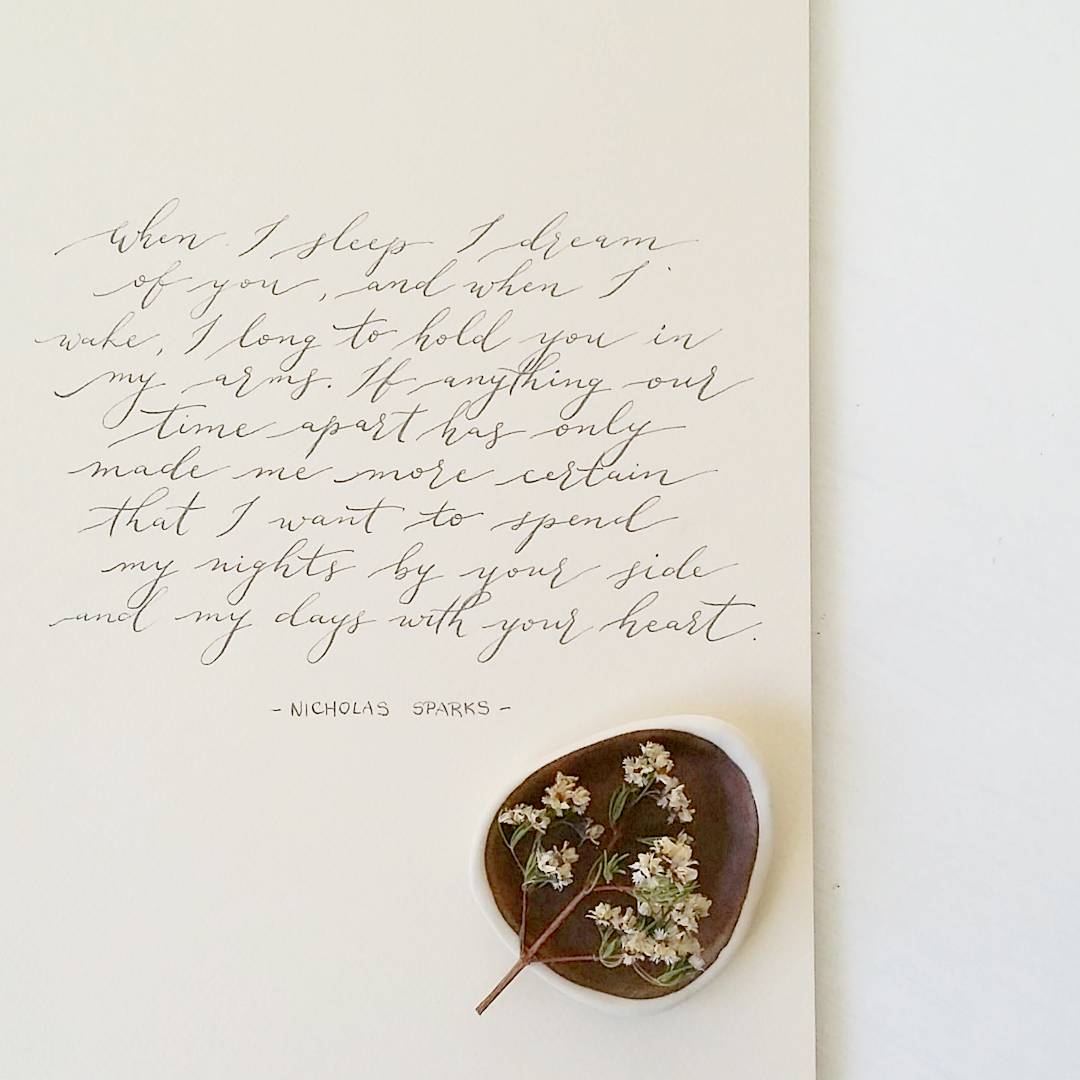 When I sleep I dream
of you, and when I
wake, I long to hold you in
my arms. If anything our
time apart has only
made me more certain
that I want to spend
my nights by your side
and my days with your heart.
- NICHOLAS SPARKS -